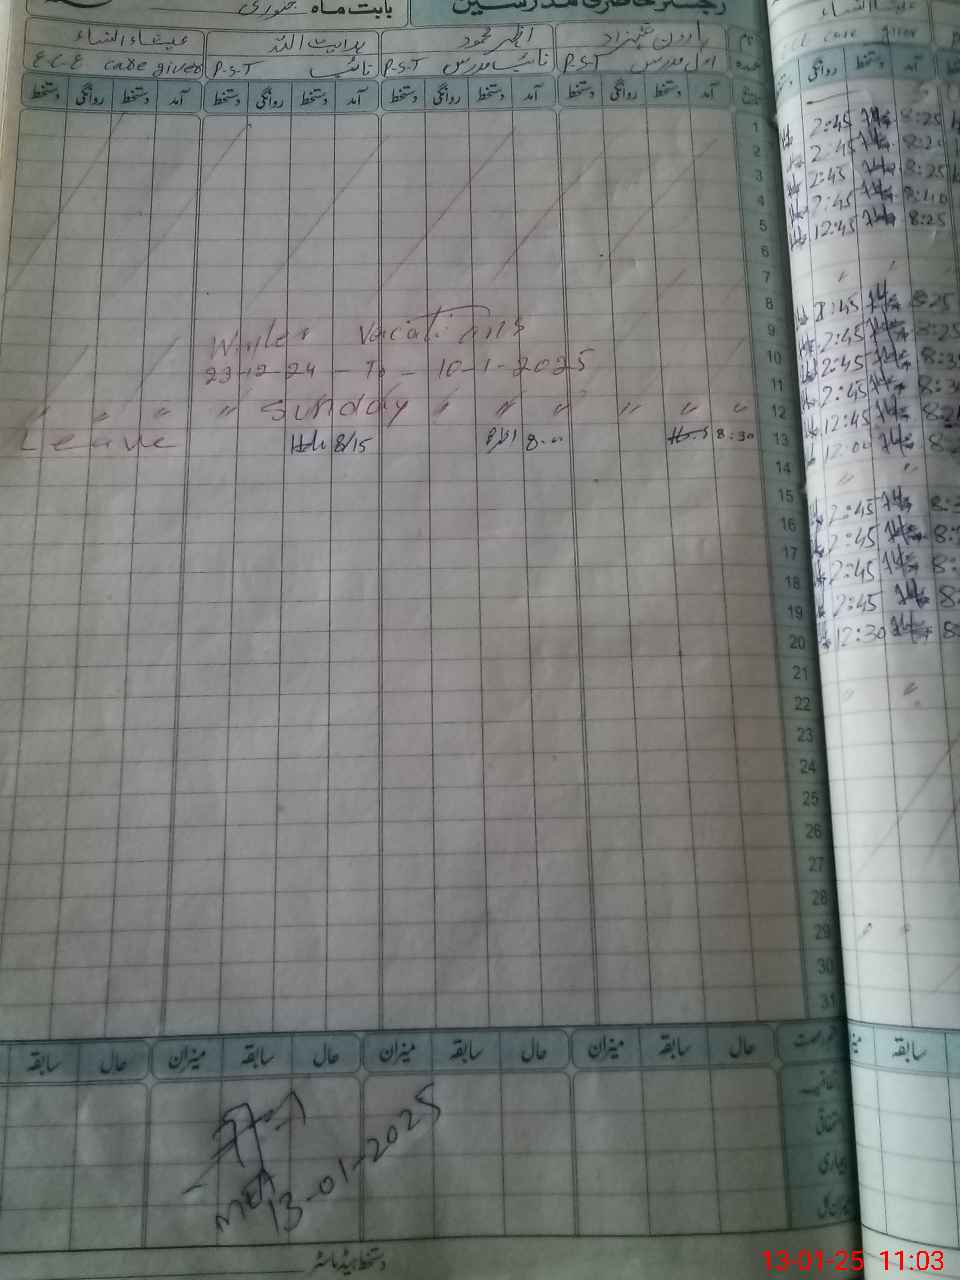 رجسٹر حاضری مدرسین بابت ماہ جنوری
نام ہارون شہزاد اظہر محمود ہدایت اللہ عیشاء النساء
عہدہ اول مدرس P.S.T نائب مدرس P.S.T نائب P.S.T E.C.E care giver
آمد دستخط روانگی دستخط آمد دستخط روانگی دستخط آمد دستخط روانگی دستخط آمد دستخط روانگی دستخط
1
2
3
4
5
6
7
8
Winter Vacations
9
23-12-24 - To - 10-1-2025
10
11
12 " " " " " " Sunday " " " "
13 8:30 8:00 8/15 Leave
14
15
16
17
18
19
20
21
22
23
24
25
26
27
28
29
30
31
حال سابقہ میزان حال سابقہ میزان حال سابقہ میزان حال سابقہ
اتفاقیہ
بیماری
13-01-2025
دستخط ہیڈ ماسٹر
care giver
آمد دستخط روانگی
8:25 2:45
2:45
8:25 2:45
8:40 2:45
8:25 12:45
8:25 2:45
2:45
2:45
2:45
12:45
12:00
2:45
2:45
2:45
2:45
12:30
سابقہ
13-01-25 11:03